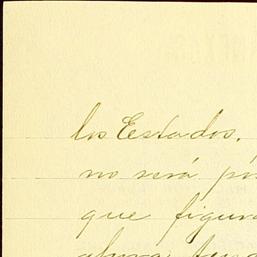 los Estados.
no será pós
que figura
ahora